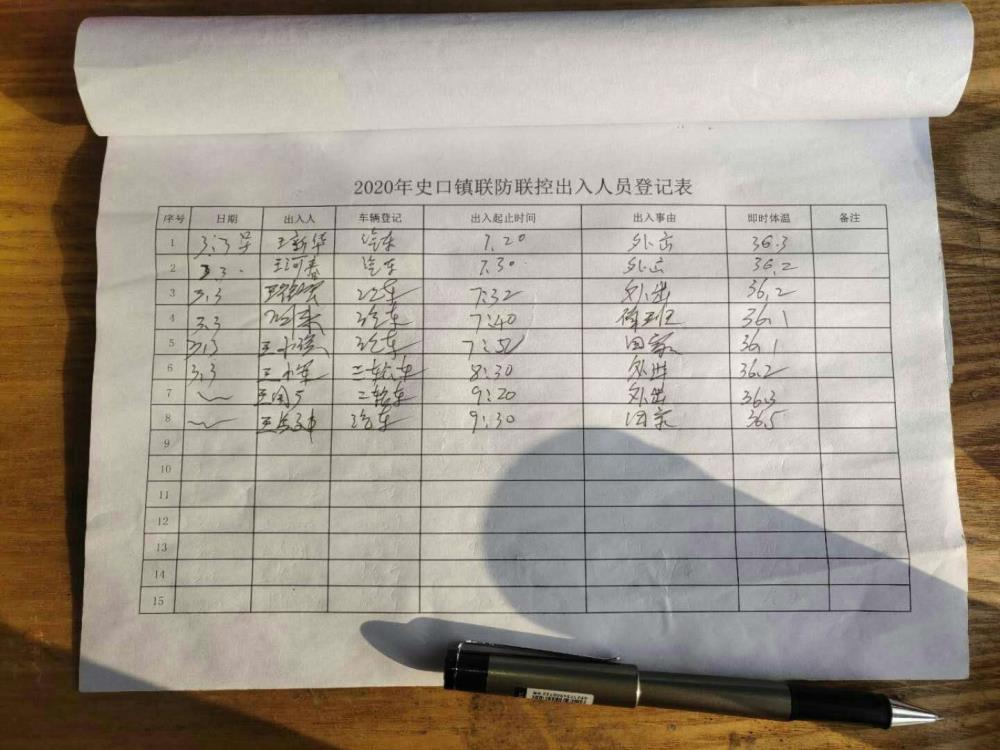 2020年史口镇联防联控出入人员登记表
序号 日期 出入人 车辆登记 出入起止时间 出入事由 即时体温 备注
1 3.3号 王新华 汽车 7.20 外出 36.3
2 3 3. 王河春 汽车 7.30 外出 36.2
3 3.3 汽车 7:32 外出 36.2
4 3.3 汽车 7:40 36.1
5 3.3 汽车 回家 36.1
6 3.3 王小军 二轮车 8:30 外出 36.2
7 二轮车 9:20 外出 36.3
8 汽车 9:30 回家 36.5
9
10
11
12
13
14
15